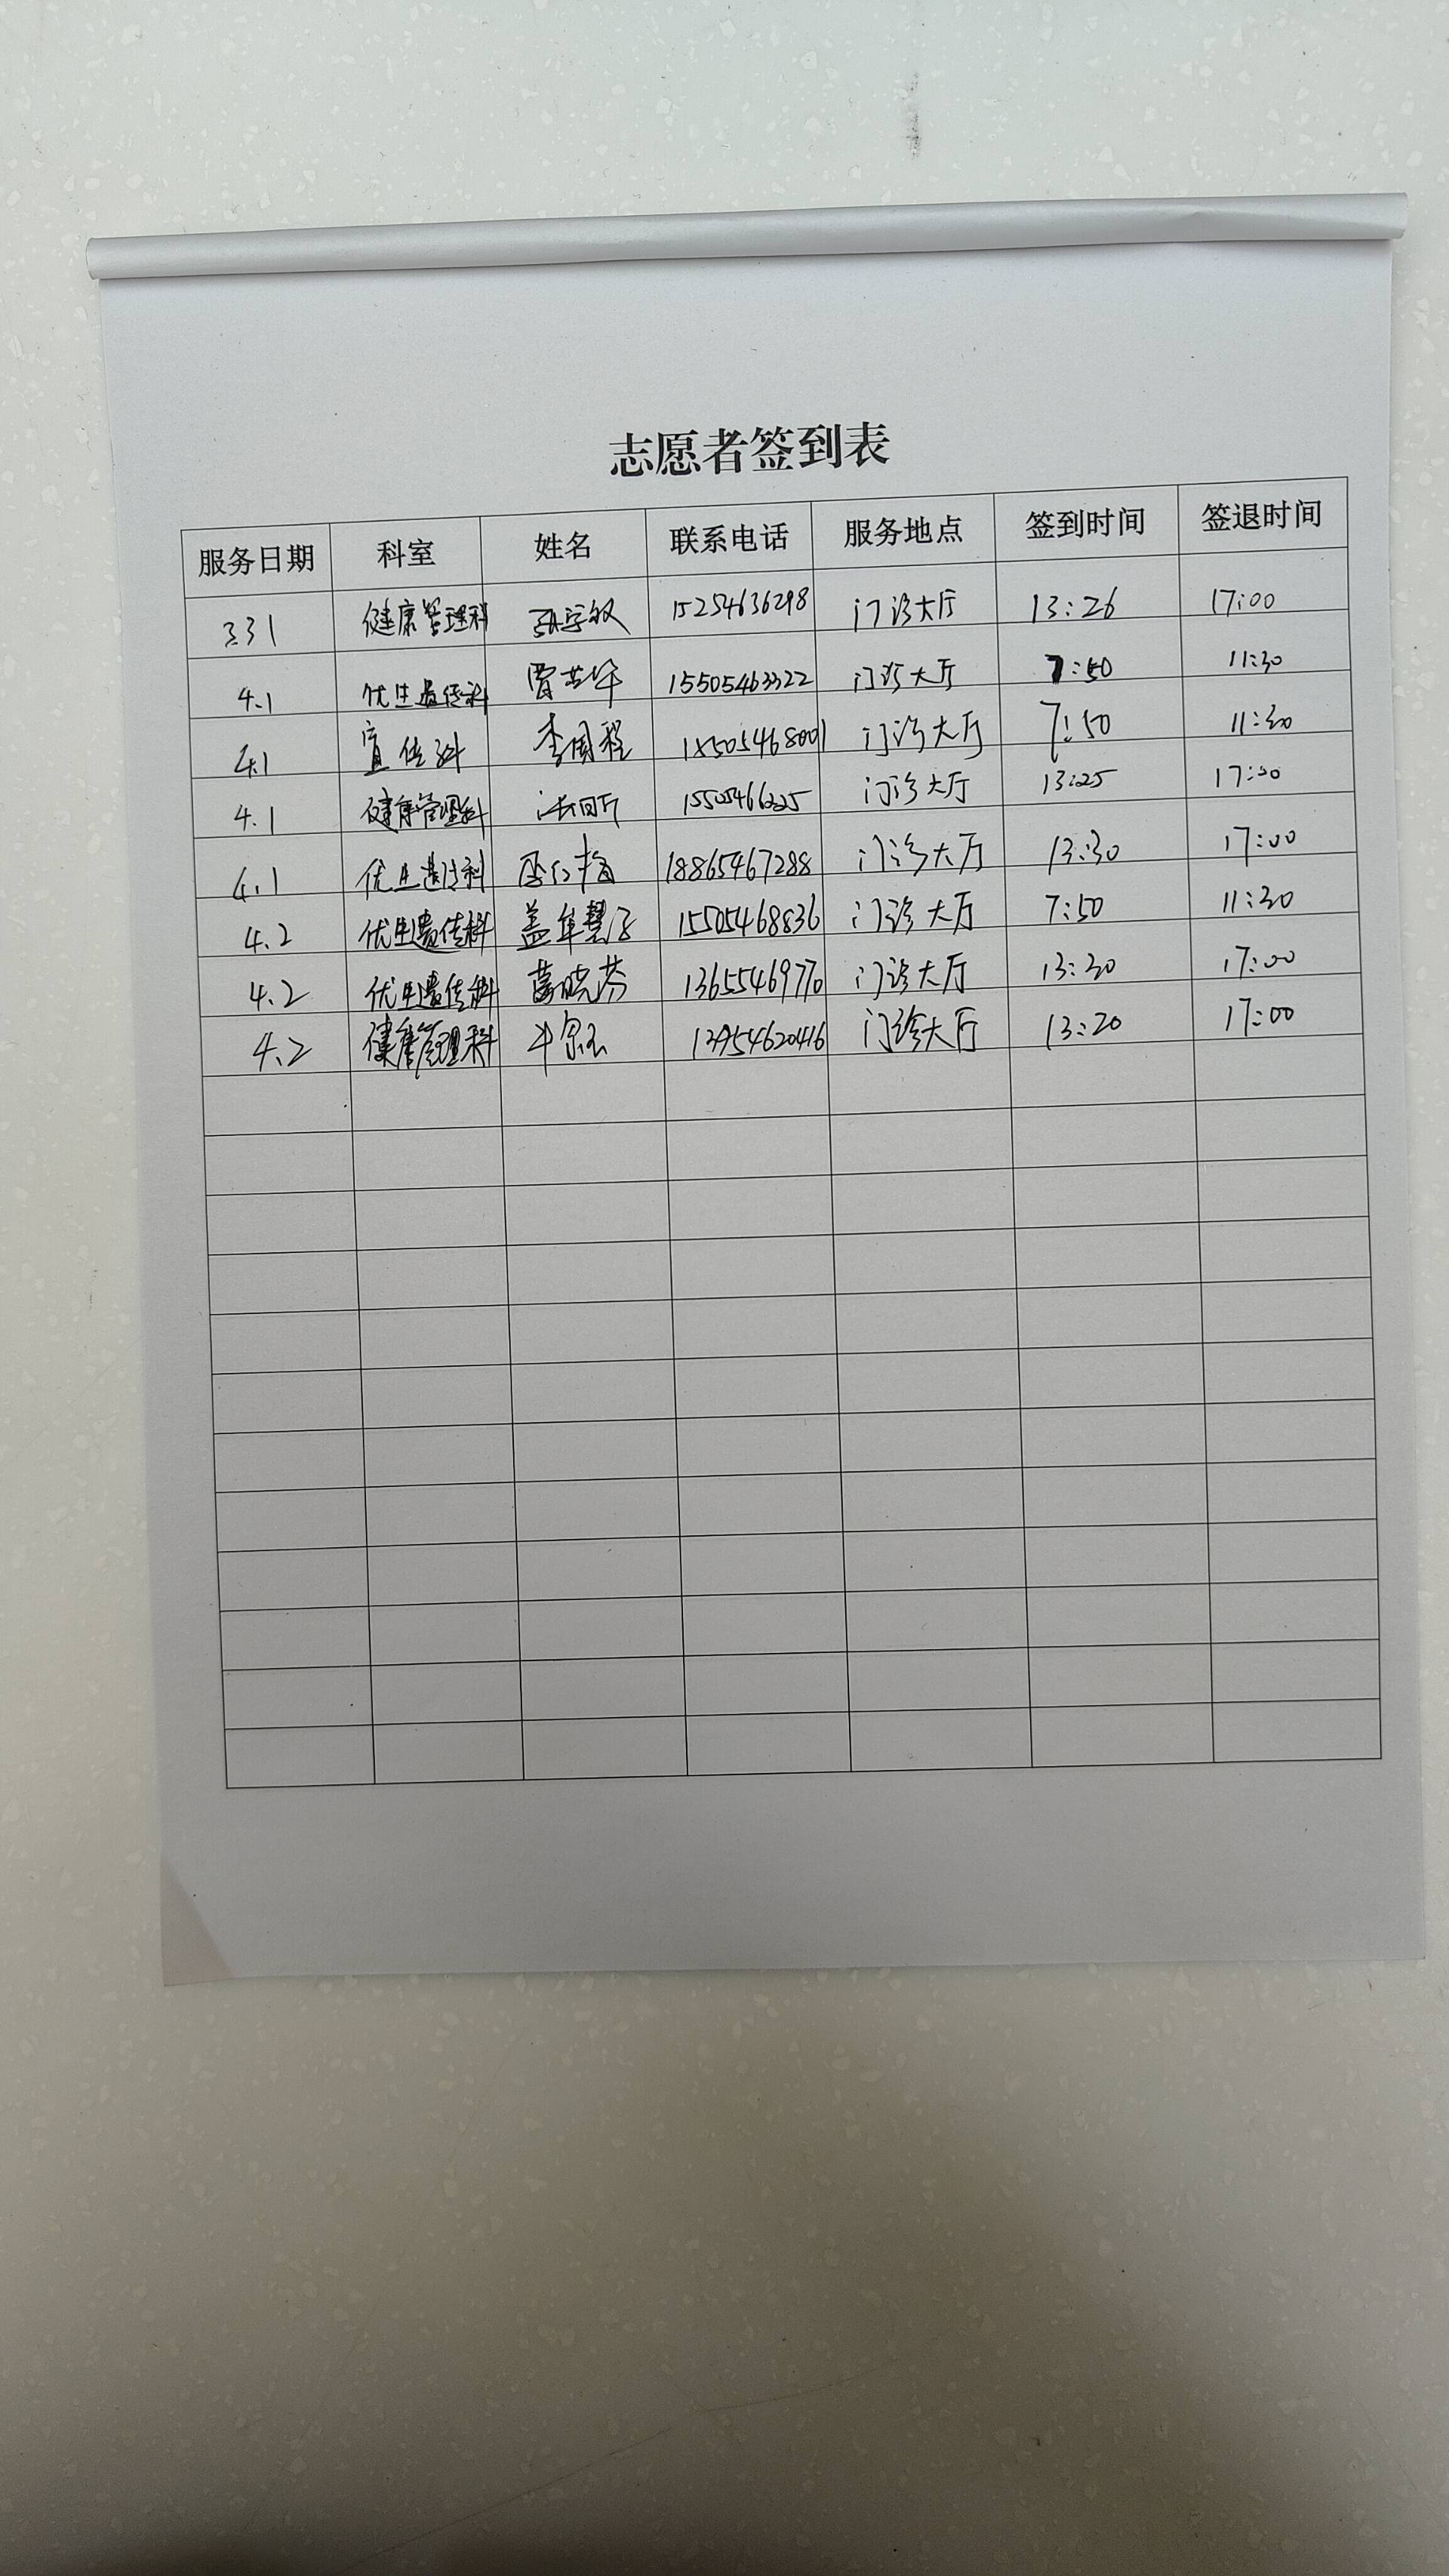 志愿者签到表
服务日期 科室 姓名 联系电话 服务地点 签到时间 签退时间
3.31 健康管理科 15254636298 门诊大厅 13:26 17:00
4.1 优生遗传科 15505463322 门诊大厅 7:50 11:30
4.1 宣传科 李国程 门诊大厅 7:50 11:30
4.1 健康管理科 门诊大厅 13:25 17:00
4.1 优生遗传科 18865467288 门诊大厅 13:30 17:00
4.2 优生遗传科 15505468836 门诊大厅 7:50 11:30
4.2 优生遗传科 薛晓芬 13655469770 门诊大厅 13:30 17:00
4.2 健康管理科 门诊大厅 13:20 17:00